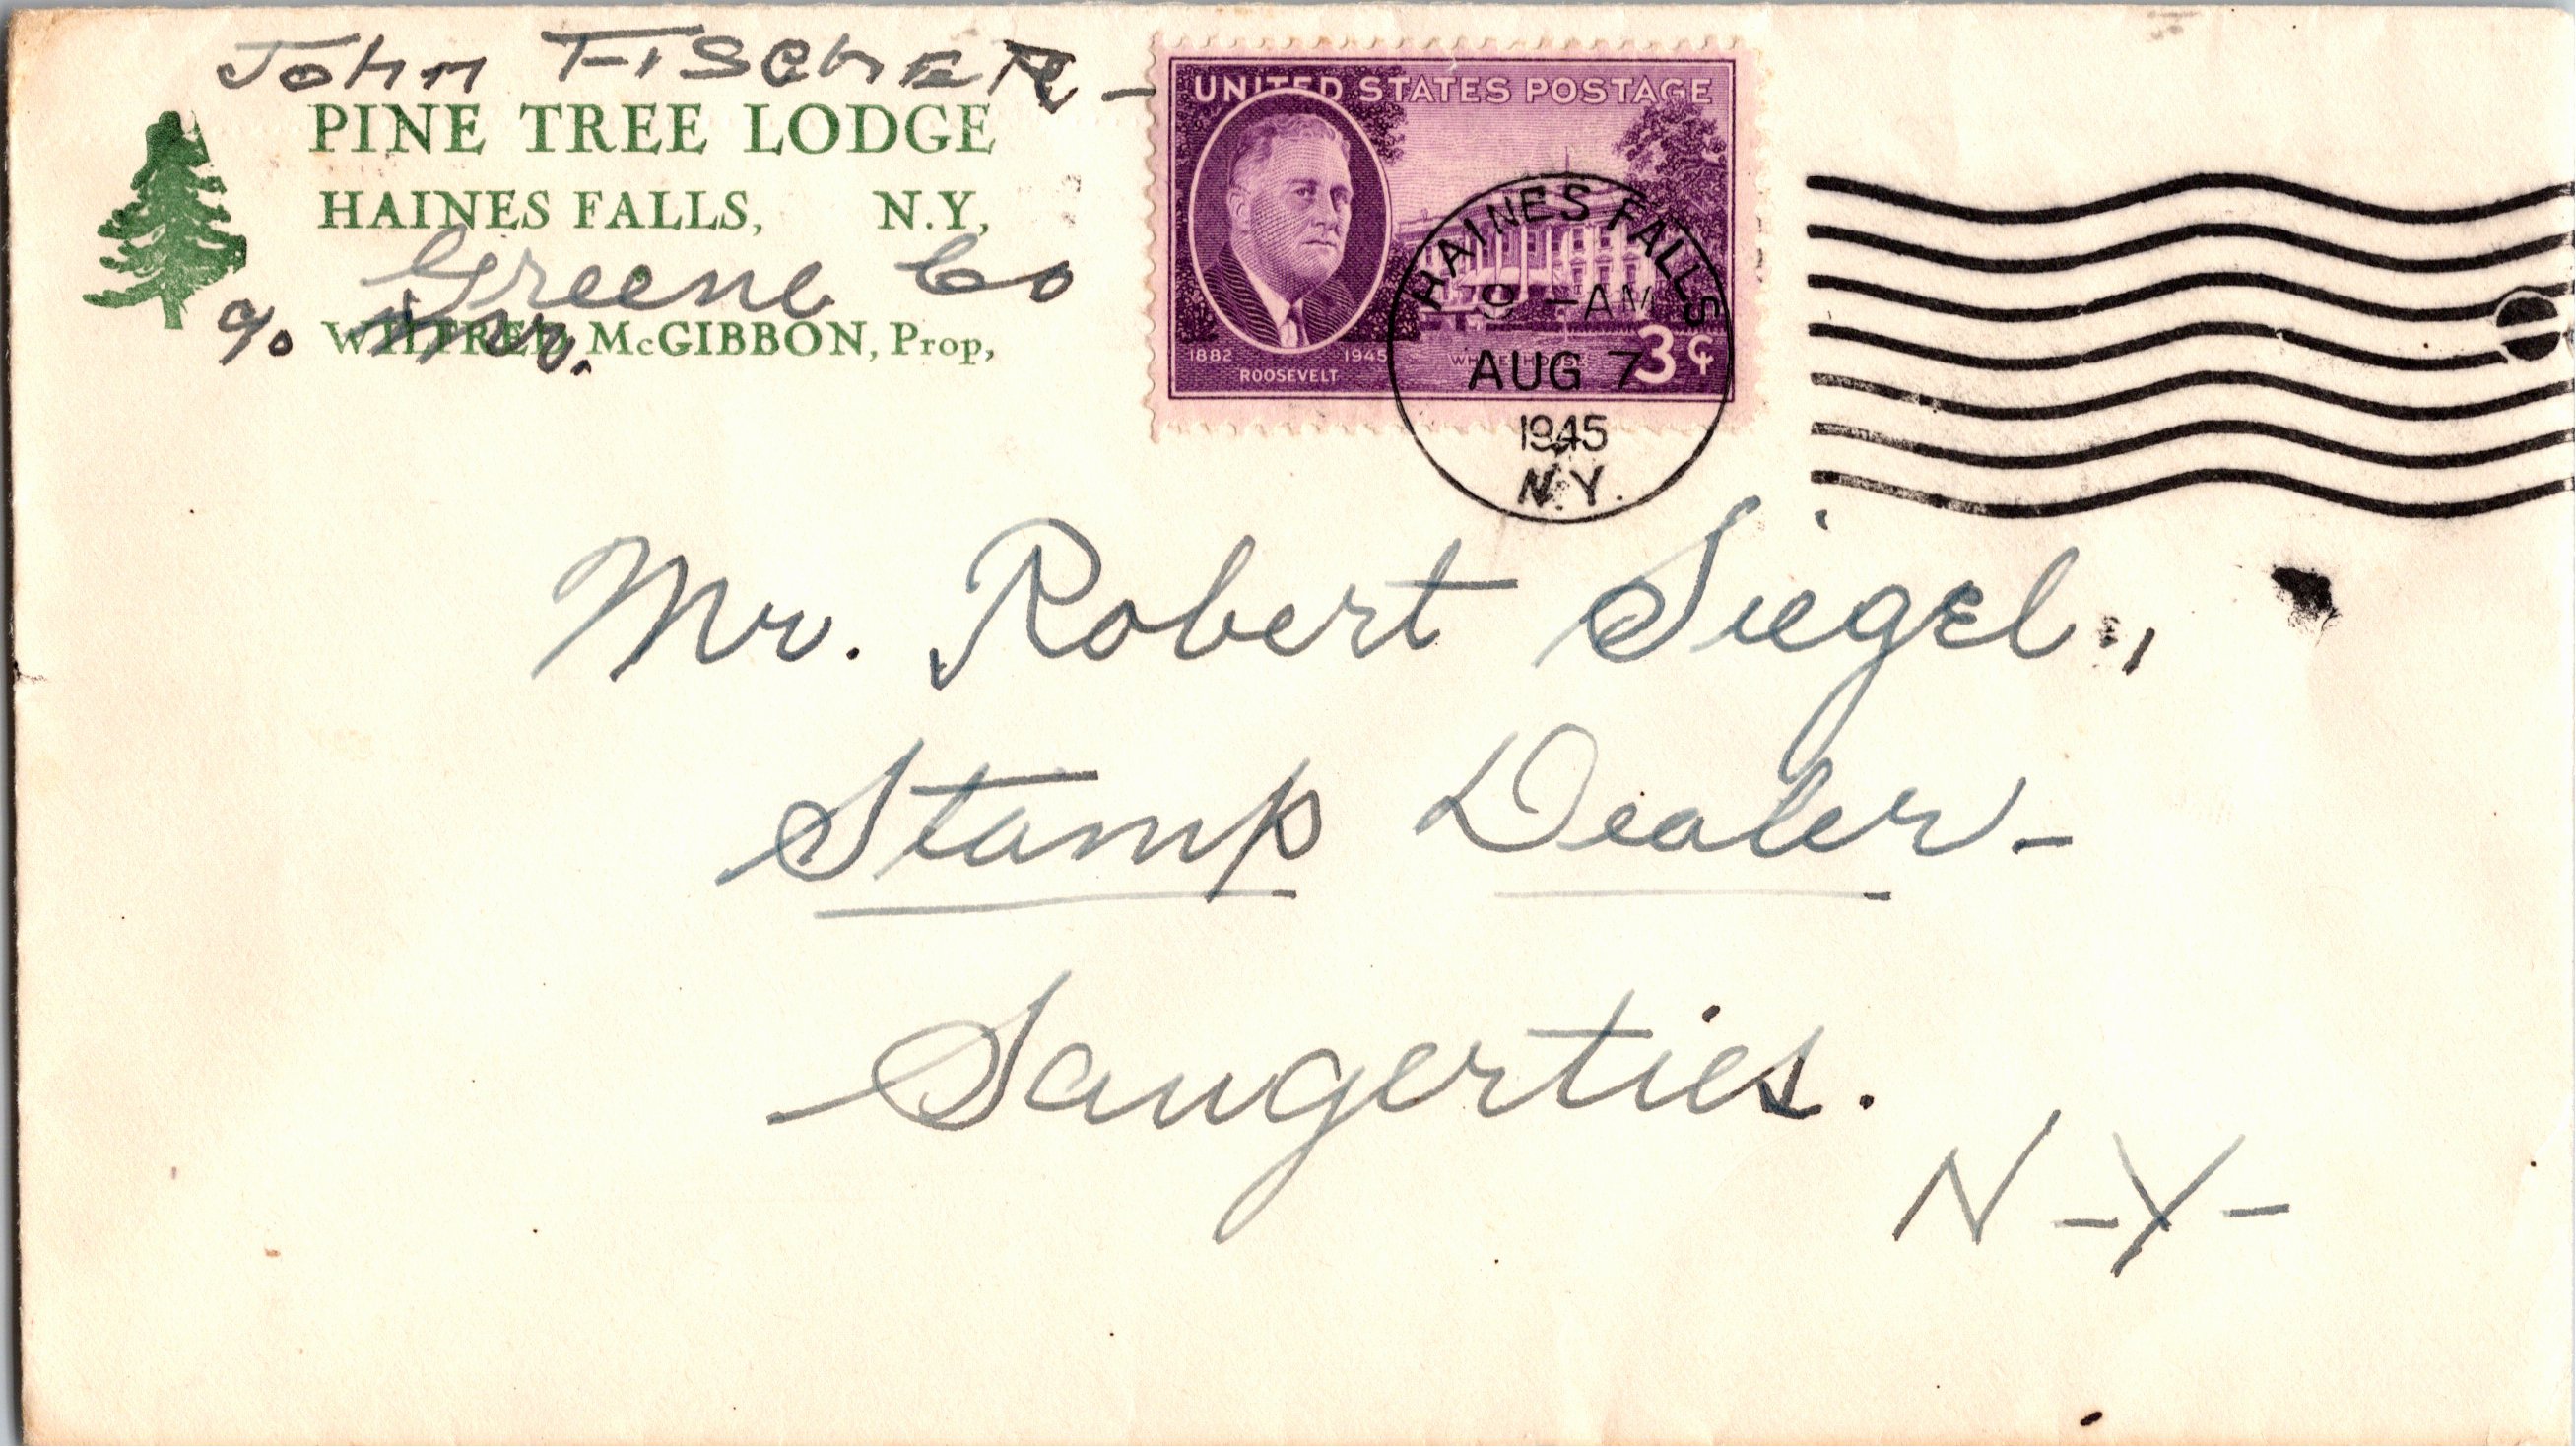 John FISCHER -
PINE TREE LODGE
HAINES FALLS, N.Y,
Greene Co
c/o Mr. McGIBBON, Prop,
UNITED STATES POSTAGE
1882 1945
ROOSEVELT
WHITE HOUSE
3¢
HAINES FALLS
9 - AM
AUG 7
1945
N.Y.
Mr. Robert Siegel.,
Stamp Dealer -
Saugerties.
N-Y-